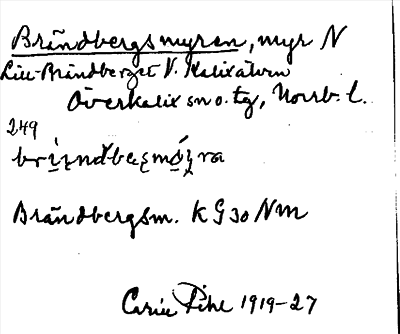 Brändbergsmyren, myr N
Lill-Brändberget V. Kalixälven
Överkalix sn o. tg, Norrb. l.
249
Brändbergsm. KG30 Nm
Carin Pihl 1919-27